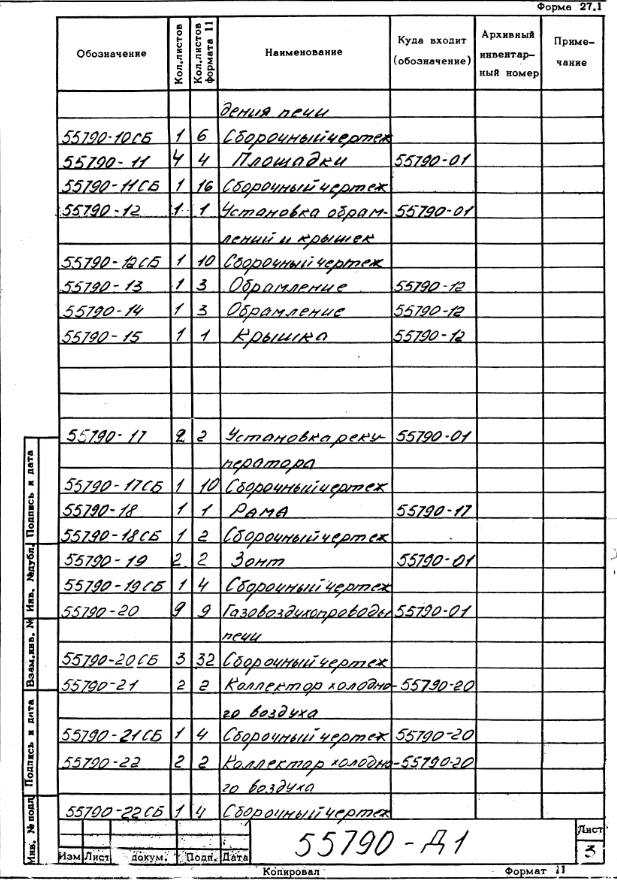 Форма 27.1
Обозначение Кол.листов Кол.листов формата 11 Наименование Куда входит (обозначение) Архивный инвентарный номер Примечание
дения печи
55790-10СБ 1 6 Сборочный чертеж
55790-11 4 4 Площадки 55790-01
55790-11СБ 1 16 Сборочный чертеж
55790-12 1 1 Установка обрам- 55790-01
лений и крышек
55790-12СБ 1 10 Сборочный чертеж
55790-13 1 3 Обрамление 55790-12
55790-14 1 3 Обрамление 55790-12
55790-15 1 1 Крышка 55790-12
55790-17 2 2 Установка реку- 55790-01
ператора
55790-17СБ 1 10 Сборочный чертеж
55790-18 1 1 Рама 55790-17
55790-18СБ 1 2 Сборочный чертеж
55790-19 2 2 Зонт 55790-01
55790-19СБ 1 4 Сборочный чертеж
55790-20 9 9 Газовоздухопроводы 55790-01
печи
55790-20СБ 3 32 Сборочный чертеж
55790-21 2 2 Коллектор холодно- 55790-20
го воздуха
55790-21СБ 1 4 Сборочный чертеж 55790-20
55790-22 2 2 Коллектор холодно- 55790-20
го воздуха
55790-22СБ 1 4 Сборочный чертеж
Подпись и дата
Инв. №дубл.
Взам.инв. №
Подпись и дата
Инв. № подл
Изм Лист докум. Подп. Дата
55790-Д1
Лист
3
Копировал Формат 11